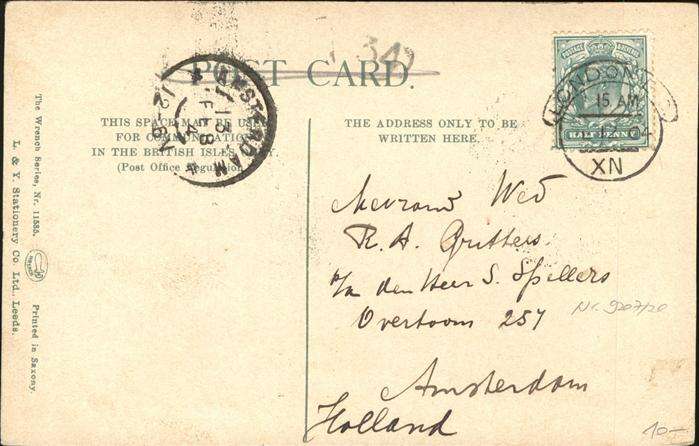 POST CARD.
THIS SPACE MAY BE USED
FOR COMMUNICATION
IN THE BRITISH ISLES ONLY.
(Post Office Regulation)
THE ADDRESS ONLY TO BE
WRITTEN HERE.
AMSTERDAM
13 FEB
4
12-1N
POSTAGE REVENUE
HALF PENNY
LONDON
15 AM
XN
Wed
R. A. Gritters
p/a den Heer S. Spillers
Overtoom 257
Amsterdam
Holland
Nr. 9207/20
10-
The Wrench Series, Nr. 11585.
Printed in Saxony.
L & Y Stationery Co. Ltd. Leeds.